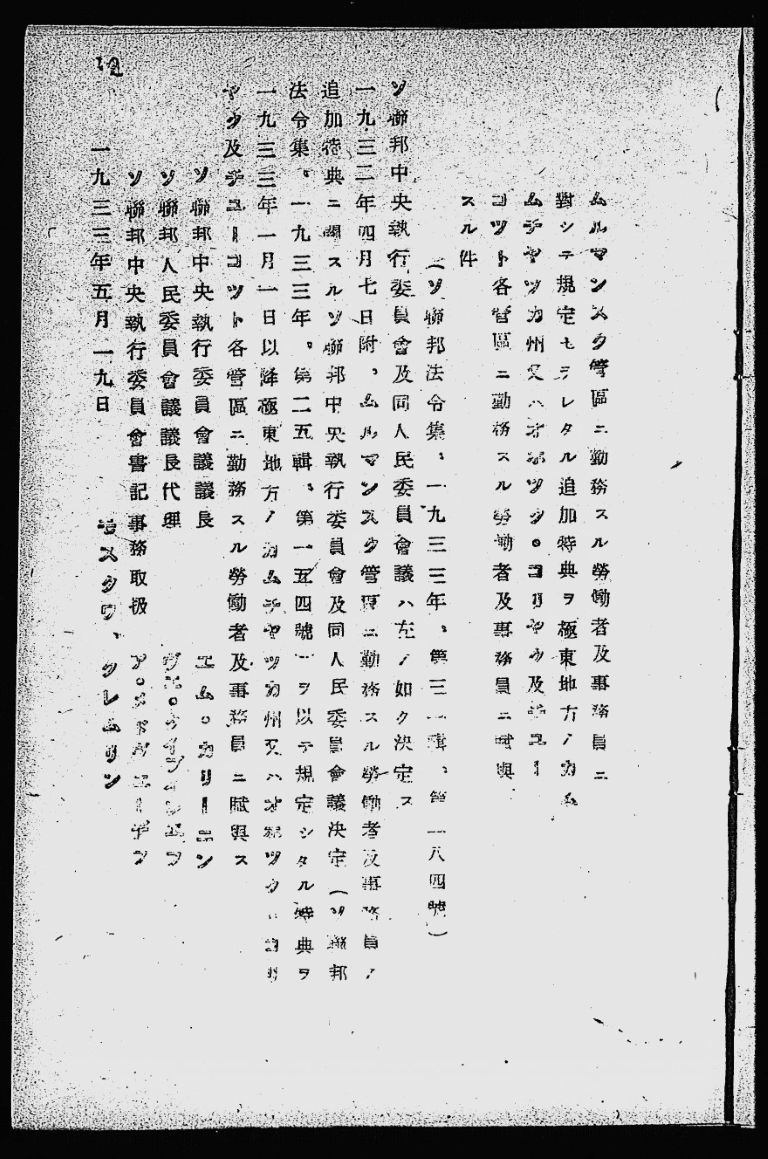 ムルマンスク管區ニ勤務スル勞働者及事務員ニ
對シテ規定セラレタル追加特典ヲ極東地方ノカム
ムチヤツカ州又ハオホツク。コリヤク及チユー
コツト各管區ニ勤務スル勞働者及事務員ニ賦與
スル件
(ソ聯邦法令集、一九三三年、第三一輯、第一八四號)
ソ聯邦中央執行委員會及同人民委員會議ハ左ノ如ク決定ス
一九三二年四月七日附、ムルマンスク管區ニ勤務スル勞働者及事務員ノ
追加特典ニ關スルソ聯邦中央執行委員會及同人民委員會議決定(ソ聯邦
法令集、一九三三年、第二五輯、第一五四號)ヲ以テ規定シタル特典ヲ
一九三三年一月一日以降極東地方ノカムチヤツカ州又ハオホツク、コリ
ヤク及チユーコツト各管區ニ勤務スル勞働者及事務員ニ賦與ス
ソ聯邦中央執行委員會議議長 エム。カリーニン
ソ聯邦人民委員會議議長代理
ソ聯邦中央執行委員會書記事務取扱 ア。メドヴエーデフ
一九三三年五月一九日 モスクワ、クレムリン
12